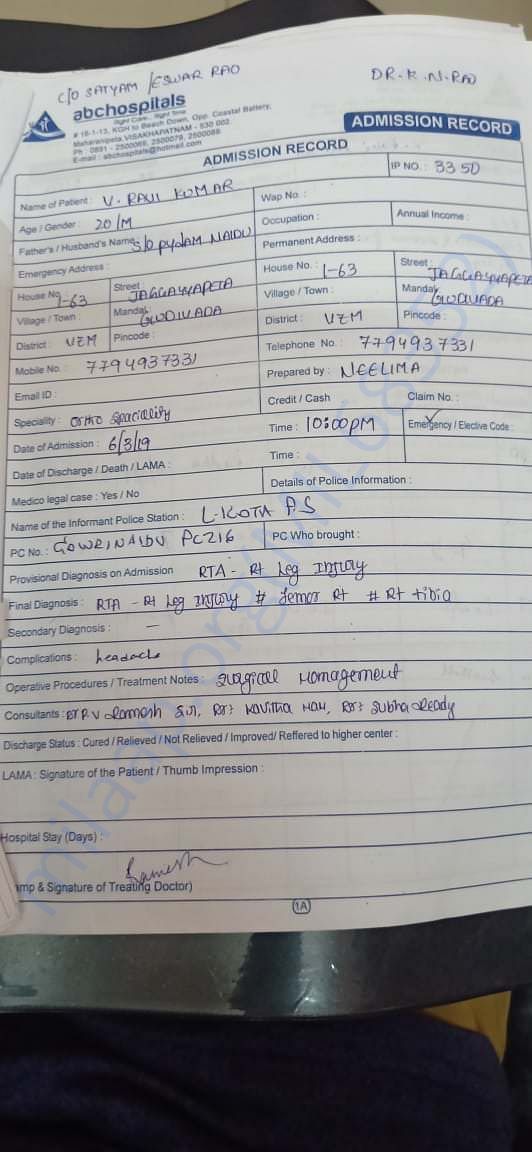 C/O SATYAM / ESWAR RAO
DR. K. N. RAO
abchospitals
Right Care... Right Time
# 16-1-13, KGH to Beach Down, Opp. Coastal Battery,
Maharanipeta, VISAKHAPATNAM - 530 002.
Ph : 0891 - 2500088, 2500079, 2500088
E-mail : abchospitals@hotmail.com
ADMISSION RECORD
ADMISSION RECORD
IP NO. : 3350
Name of Patient : V. RAVI KUMAR
Wap No. :
Age / Gender : 20/M
Occupation :
Annual Income :
Father's / Husband's Name : S/o pydam NAIDU
Permanent Address :
Emergency Address :
House No. 1-63
Street : JAGGAYYAPETA
House No. : 1-63
Street : JAGGAYYAPETA
Village / Town :
Mandal GUDIVADA
Village / Town :
Mandal GUDIVADA
District : VZM
Pincode :
District : VZM
Pincode :
Mobile No. : 7794937331
Telephone No. : 7794937331
Email ID :
Prepared by : NEELIMA
Speciality : ortho speciality
Credit / Cash
Claim No. :
Date of Admission : 6/3/19
Time : 10:00PM
Emergency / Elective Code :
Date of Discharge / Death / LAMA :
Time :
Medico legal case : Yes / No
Details of Police Information :
Name of the Informant Police Station : L-KOTA P.S
PC No. : GOWRINAIDU PC216
PC Who brought :
Provisional Diagnosis on Admission RTA - Rt Leg Injury
Final Diagnosis : RTA - Rt Leg Injury # femor Rt # Rt tibia
Secondary Diagnosis : —
Complications : headache
Operative Procedures / Treatment Notes : surgical Management
Consultants : Dr P V Ramesh Sir, Dr: Kavitha Mam, Dr: Subha Ready
Discharge Status : Cured / Relieved / Not Relieved / Improved/ Reffered to higher center :
LAMA : Signature of the Patient / Thumb Impression :
Hospital Stay (Days) :
Ramesh
amp & Signature of Treating Doctor)
1A